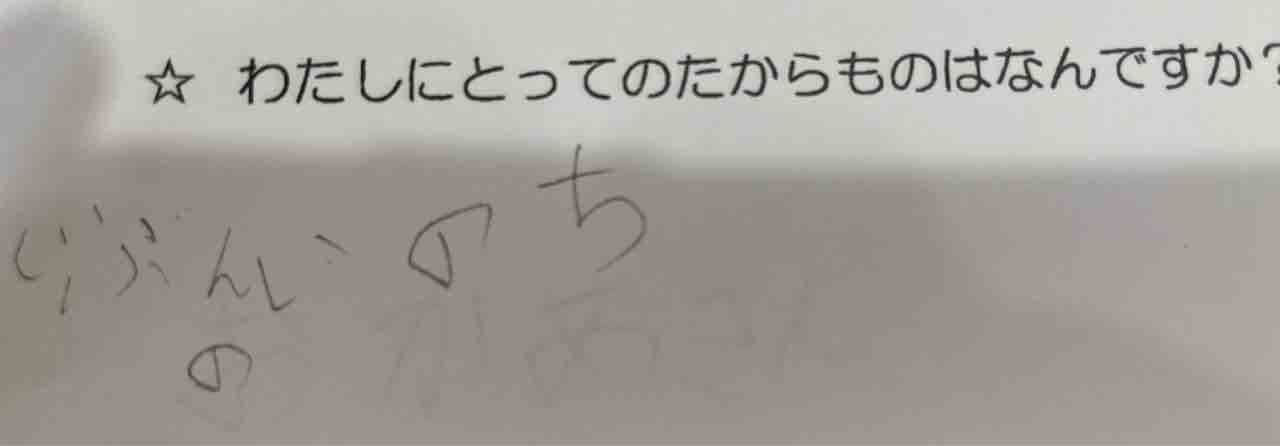 ☆ わたしにとってのたからものはなんですか?
じぶんいのち
の